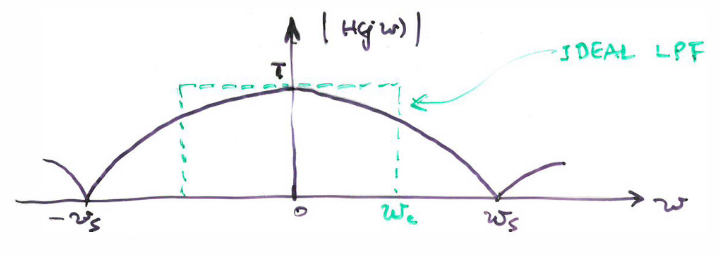 |H(jw)|
IDEAL LPF
T
-ws
0
wc
ws
w